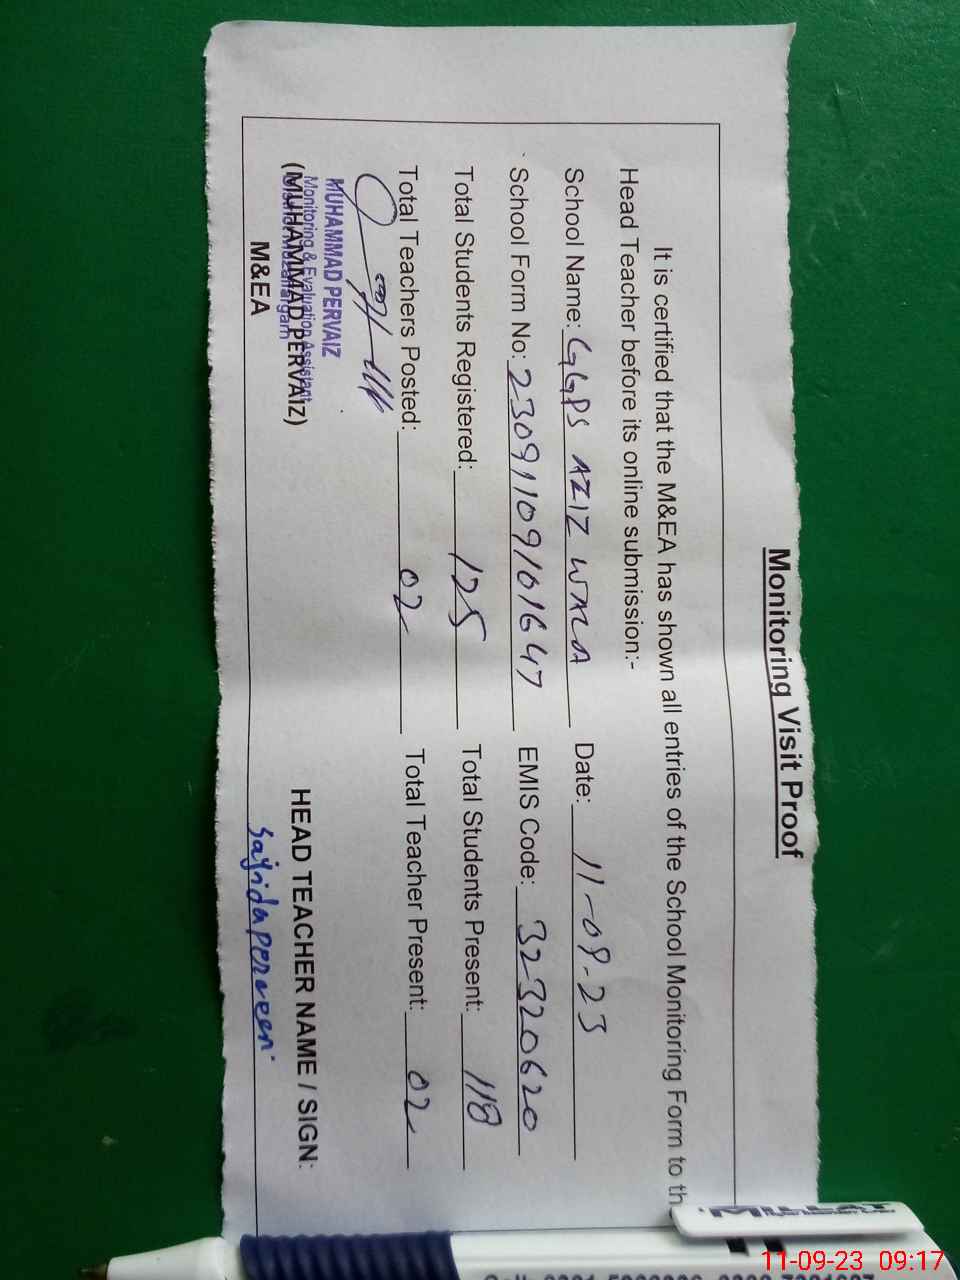 Monitoring Visit Proof
It is certified that the M&EA has shown all entries of the School Monitoring Form to th
Head Teacher before its online submission:-
School Name: GGPS AZIZ WALA Date: 11-09-23
School Form No: 23091109101647 EMIS Code: 32320620
Total Students Registered: 125 Total Students Present: 118
Total Teachers Posted: 02 Total Teacher Present: 02
MUHAMMAD PERVAIZ
Monitoring & Evaluation Assistant
(MUHAMMAD PERVAIZ)
M&EA
HEAD TEACHER NAME / SIGN:
Sajida perveen
11-09-23 09:17